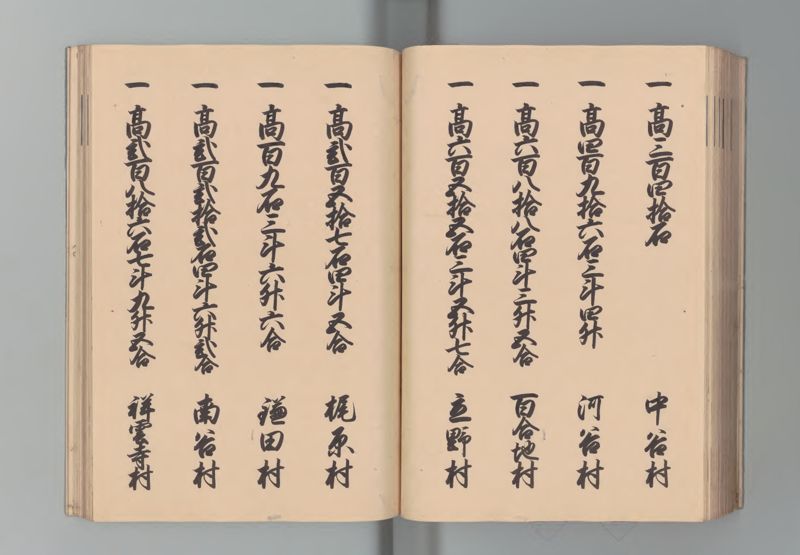 一 高三百四拾石 中谷村
一 高四百九拾六石三斗四升 河谷村
一 高六百八拾八石四斗三升五合 百合地村
一 高六百五拾五石三斗五升七合 立野村
一 高弐百五拾七石四斗五合 梶原村
一 高百九石三斗六升六合 鎌田村
一 高弐百弐拾弐石四斗六升弐合 南谷村
一 高弐百八拾六石七斗九升五合 祥雲寺村